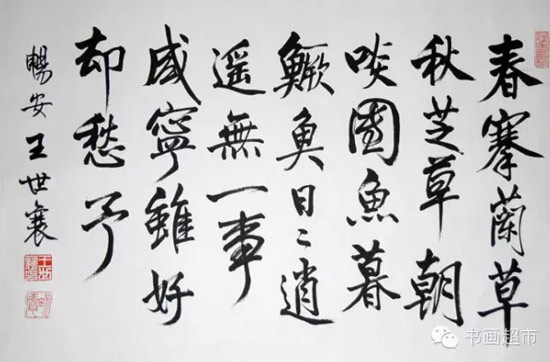 春搴蘭草
秋芝草朝
啖團魚暮
鱖魚日〻逍
遥無一事
咸寧雖好
却愁予
暢安王世襄
书画超市